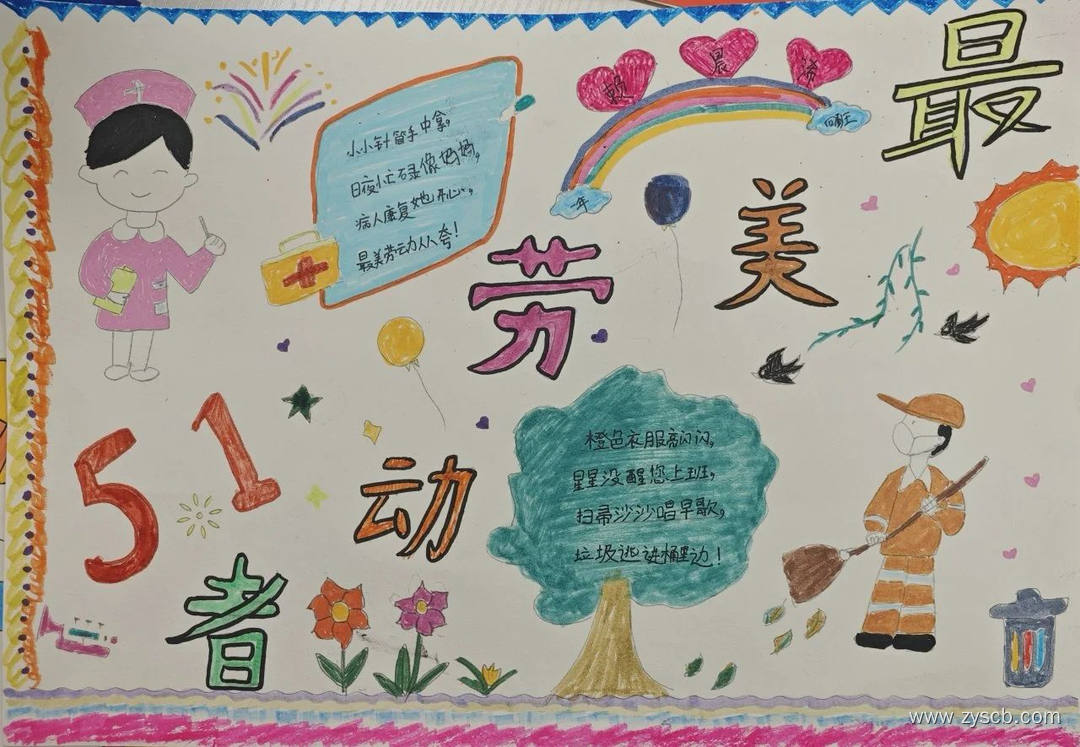 最
美
劳
动
者
51
晨
一年
四班
小小针管手中拿,
日夜忙碌像妈妈,
病人康复她开心,
最美劳动人人夸!
橙色衣服亮闪闪,
星星没醒您上班,
扫帚沙沙唱早歌,
垃圾逃进桶里边!
www.zyscb.com